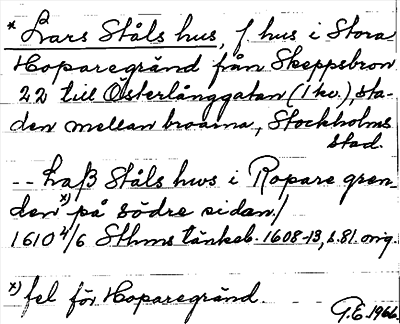 * Lars Ståls hus, f. hus i Stora
Hoparegränd från Skeppsbron
22 till Österlånggatan (1 kv.), sta-
den mellan broarna, Stockholms
stad.
-- Laß Ståls hws i Ropare gren-
den x) på södre sidan./
1610 4/6 Sthms tänkeb. 1608-13, s. 81. orig.
x) fel för Hoparegränd.
G.E. 1966.